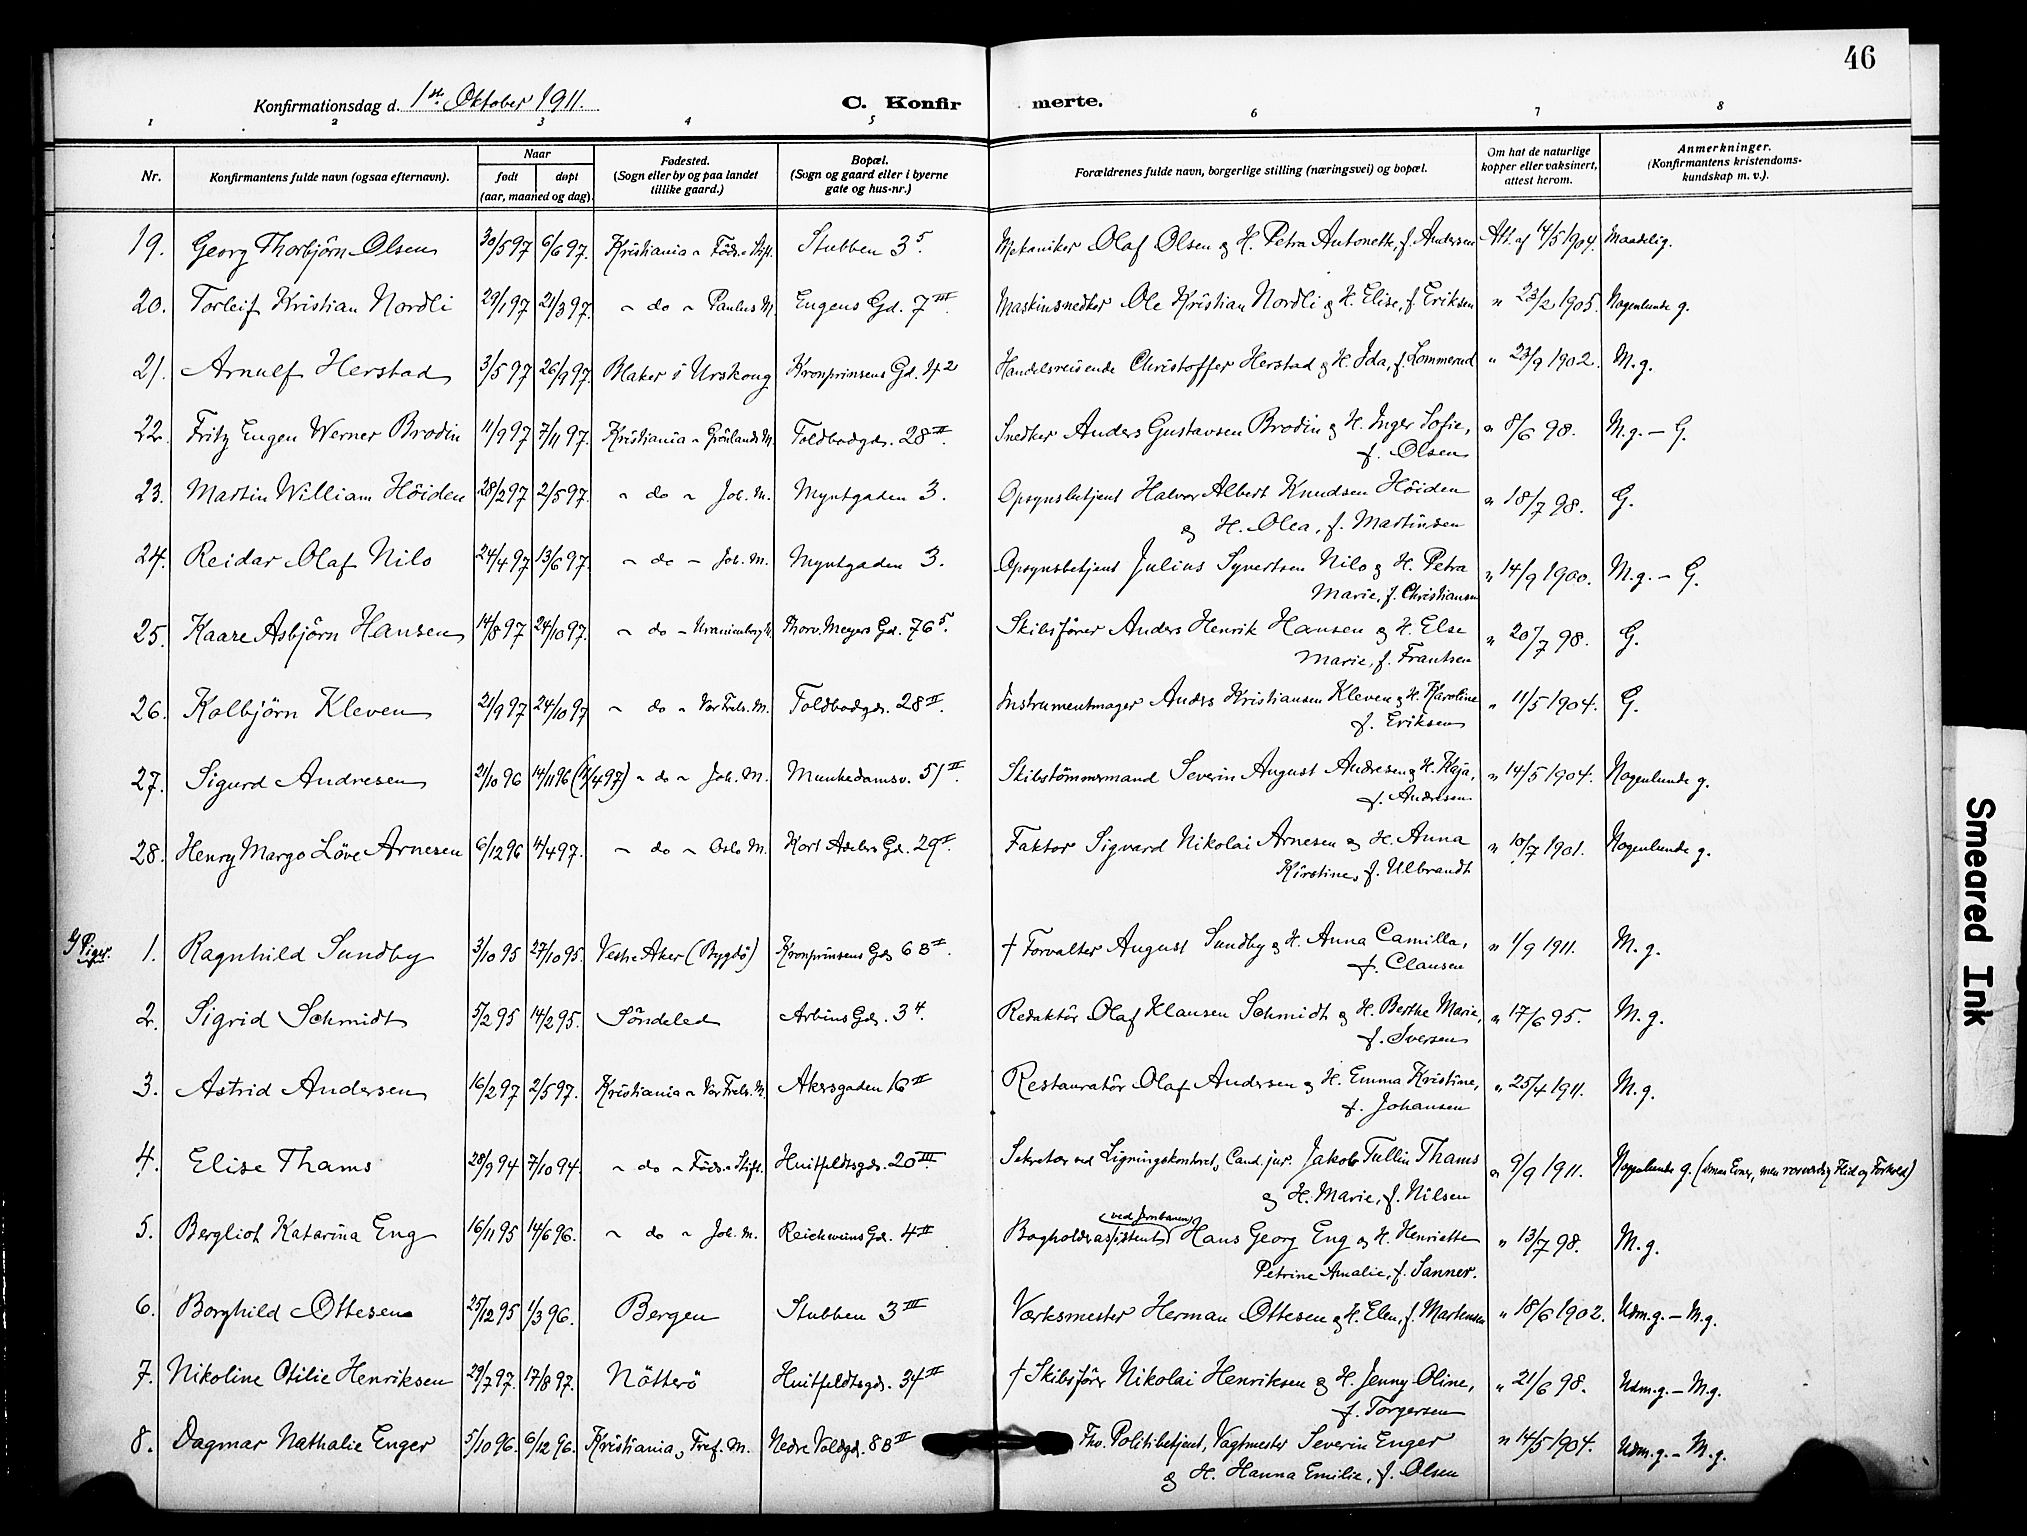 46
Konfirmationsdag d. 1ste Oktober 1911. C. Konfir merte.
1 2 3 4 5 6 7 8
Nr. Konfirmantens fulde navn (ogsaa efternavn). Naar født døpt (aar, maaned og dag) Fødested. (Sogn eller by og paa landet tillike gaard.) Bopæl. (Sogn og gaard eller i byerne gate og hus-nr.) Forældrenes fulde navn, borgerlige stilling (næringsvei) og bopæl. Om hat de naturlige kopper eller vaksinert, attest herom. Anmerkninger. (Konfirmantens kristendoms-kundskap m. v.).
19. Georg Thorbjörn Olsen 30/5 97 6/6 97. Kristiania - Föds. Stift. Stubben 3 5. Mekaniker Olaf Olsen & H. Petra Antonette, f. Andersen Att. af 14/5 1904. Maadelig.
20. Torleif Kristian Nordli 29/1 97 21/3 97. - do - Paulus M. Eugens Gd. 7 III Maskinsnedker Ole Kristian Nordli & H. Elise, f. Eriksen " 23/2 1905. Nogenlunde g.
21. Arnulf Herstad 3/5 97 26/9 97. Blaker i Urskoug Kronprinsens Gd. 42 Handelsreisende Christoffer Herstad & H. Ida, f. Lommerud " 23/9 1902. M.g.
22. Fritz Eugen Werner Brodin 11/9 97 7/11 97. Kristiania - Grönlands M. Toldbodgdr. 28 II. Snedker Anders Gustavsen Brodin & H. Inger Sofie, " 8/6 98. M.g. - G.
f. Olsen
23. Martin William Höiden 28/2 97 2/5 97. - do - Joh. M. Myntgaden 3. Opsynsbetjent Halvor Albert Knudsen Höiden " 18/7 98. G.
& H. Olea, f. Martinsen
24. Reidar Olaf Nilo 24/4 97 13/6 97. - do - Joh. M. Myntgaden 3. Opsynsbetjent Julius Syvertsen Nilo & H. Petra " 14/9 1900. M.g. - G.
Marie, f. Christiansen
25. Kaare Asbjörn Hansen 14/8 97 24/10 97. - do - Uranienborg M. Thorv. Meyers Gd. 76 5. Skibsförer Anders Henrik Hansen & H. Else " 20/7 98. G.
Marie, f. Frantsen
26. Kolbjörn Kleven 21/9 97 24/10 97 - do - Vor Frels. M. Toldbodgdr. 28 II. Instrumentmager Anders Kristiansen Kleven & H. Karoline " 11/5 1904. G.
f. Eriksen
27. Sigurd Andresen 21/10 96 14/11 96 - do - Joh. M. Munkedamsv. 51 II. Skibstömmermand Severin August Andresen & H. Kaja, " 14/5 1904. Nogenlunde g.
f. Andresen
28. Henry Margo Löve Arnesen 6/12 96 4/4 97. - do - Oslo M. Kort Adelers Gd. 29 I. Faktor Sigvard Nikolai Arnesen & H. Anna " 10/7 1901. Nogenlunde g.
Kirstine, f. Ulbrandt
Piger. 1. Ragnhild Sundby 3/10 95 27/10 95. Vestre Aker (Bygdö) Kronprinsens Gd. 6 B II. † Forvalter August Sundby & H. Anna Camilla, " 1/9 1911. M.g.
f. Clausen
2. Sigrid Schmidt 5/2 95 14/2 95. Söndeled Arbins Gd. 3 4. Redaktör Olaf Klausen Schmidt & H. Berthe Marie, " 17/6 95. M.g.
f. Iversen
3. Astrid Andersen 16/2 97 2/5 97. Kristiania - Vor Frels. M. Akersgaden 16 II Restauratör Olaf Andersen & H. Emma Kristine, " 25/4 1911. M.g.
f. Johansen
4. Elise Thams 28/9 94 7/10 94. - do - Föds. Stift. Huitfeldtsgdr. 20 III. Sekretær ved Ligningskontoret, Cand. jur. Jakob Tullin Thams " 9/9 1911. Nogenlunde g. (smaa Evner, men rosværdig Flid og Forhold)
& H. Marie, f. Nilsen
5. Bergliot Katarina Eng 16/11 95 14/6 96. - do - Joh. M. Reichweins Gd. 4 II Bogholderassistent (ved Jernbanen) Hans Georg Eng & H. Henriette " 13/7 98. M.g.
Petrine Amalie, f. Sanner.
6. Borghild Ottesen 25/12 95 1/3 96. Bergen Stubben 3 III Værksmester Herman Ottesen & H. Elen, f. Martensen " 18/6 1902. Udm.g. - M.g.
7. Nikoline Otilie Henriksen 29/7 97. 17/8 97. Nötterö Huitfeldtsgdr. 34 II † Skibsförer Nikolai Henriksen & H. Jenny Oline, " 21/6 98. Udm.g. - M.g.
f. Torgersen
8. Dagmar Nathalie Enger 5/10 96. 6/12 96. Kristiania, Tref. M. Nedre Voldgd. 8 B II Fhv. Politibetjent, Vagtmester Severin Enger " 14/5 1904. Udm.g. - M.g.
& H. Hanna Emilie, f. Olsen
Smeared Ink